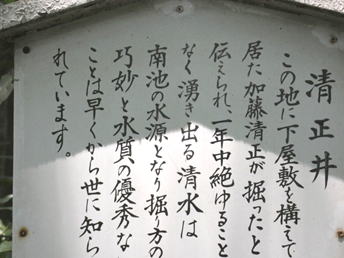 清正井
この地に下屋敷を構えて
居た加藤清正が掘ったと
伝えられ、一年中絶ゆること
なく湧き出る清水は
南池の水源となり掘り方の
巧妙と水質の優秀な
ことは早くから世に知ら
れています。